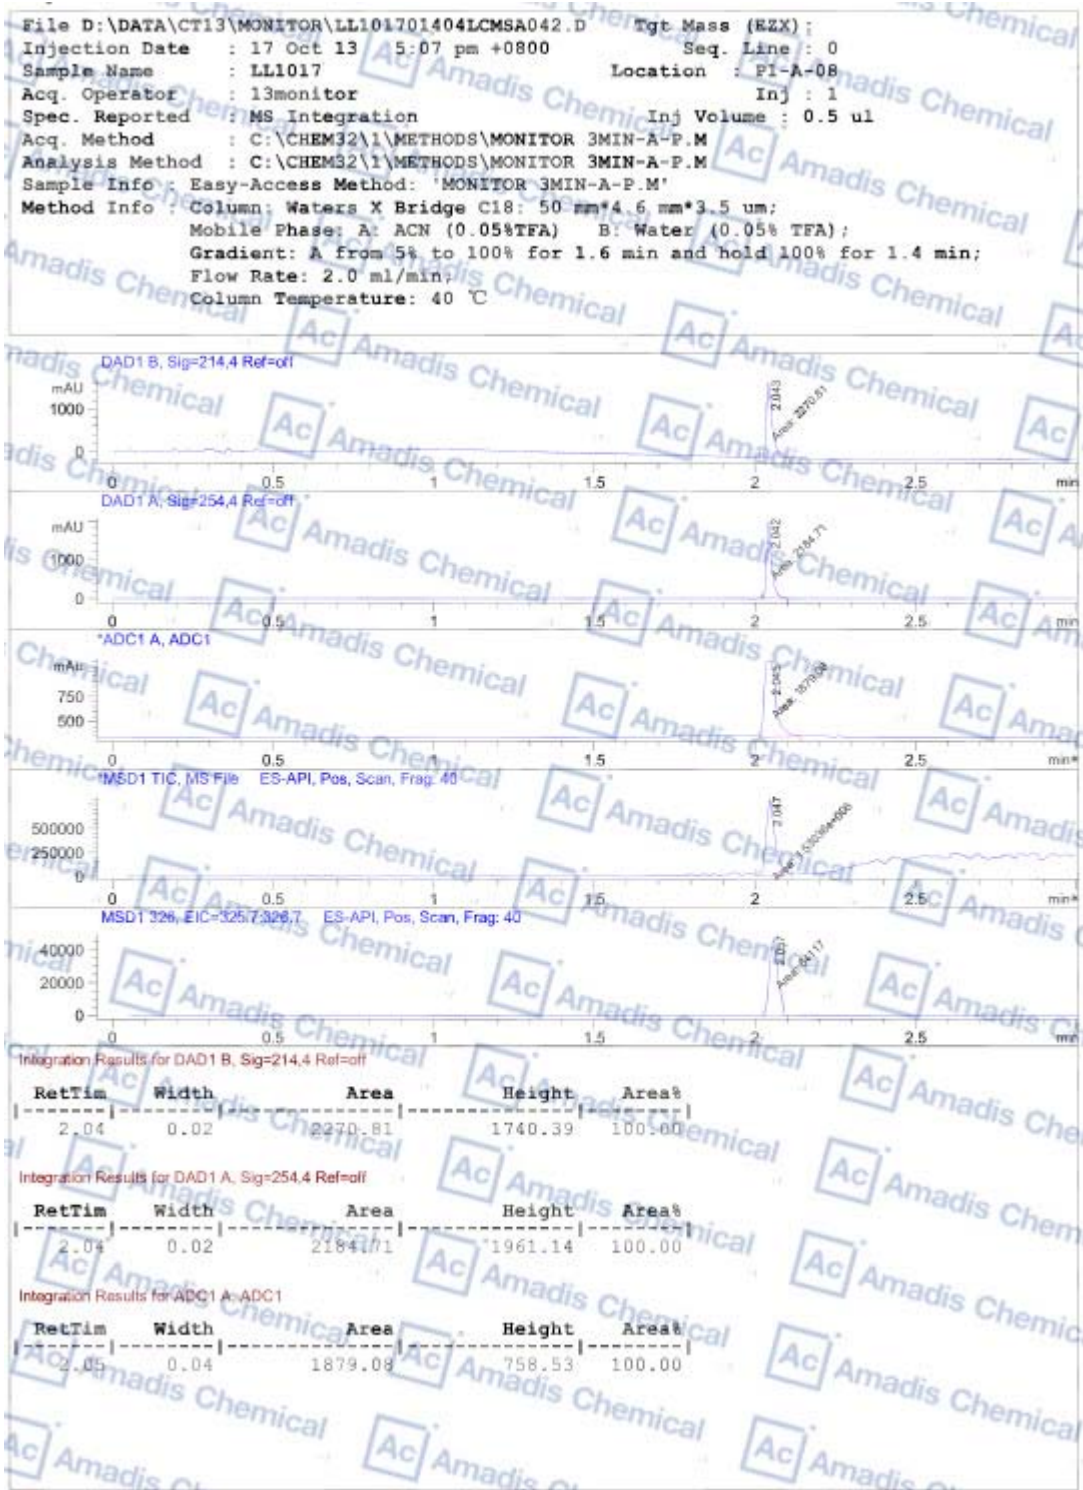 File D:\DATA\CT13\MONITOR\LL101701404LCMSA042.D Tgt Mass (EZX):
Injection Date : 17 Oct 13 5:07 pm +0800 Seq. Line : 0
Sample Name : LL1017 Location : P1-A-08
Acq. Operator : 13monitor Inj : 1
Spec. Reported : MS Integration Inj Volume : 0.5 ul
Acq. Method : C:\CHEM32\1\METHODS\MONITOR 3MIN-A-P.M
Analysis Method : C:\CHEM32\1\METHODS\MONITOR 3MIN-A-P.M
Sample Info : Easy-Access Method: 'MONITOR 3MIN-A-P.M'
Method Info : Column: Waters X Bridge C18: 50 mm*4.6 mm*3.5 um;
Mobile Phase: A: ACN (0.05%TFA) B: Water (0.05% TFA);
Gradient: A from 5% to 100% for 1.6 min and hold 100% for 1.4 min;
Flow Rate: 2.0 ml/min;
Column Temperature: 40 ℃
DAD1 B, Sig=214,4 Ref=off
mAU
1000
0
2.043
Area: 2270.81
0 0.5 1 1.5 2 2.5 min
DAD1 A, Sig=254,4 Ref=off
mAU
1000
0
2.042
Area: 2184.71
0 0.5 1 1.5 2 2.5 min
*ADC1 A, ADC1
mAU
750
500
2.045
Area: 1879.08
0 0.5 1 1.5 2 2.5 min*
*MSD1 TIC, MS File ES-API, Pos, Scan, Frag: 40
500000
250000
0
2.047
0 0.5 1 1.5 2 2.5 min*
MSD1 326, EIC=325.7:326.7 ES-API, Pos, Scan, Frag: 40
40000
20000
0
2.051
Area: 64117
0 0.5 1 1.5 2 2.5 min
Integration Results for DAD1 B, Sig=214,4 Ref=off
RetTim Width Area Height Area%
2.04 0.02 2270.81 1740.39 100.00
Integration Results for DAD1 A, Sig=254,4 Ref=off
RetTim Width Area Height Area%
2.04 0.02 2184.71 1961.14 100.00
Integration Results for ADC1 A, ADC1
RetTim Width Area Height Area%
2.05 0.04 1879.08 758.53 100.00
Ac Amadis Chemical